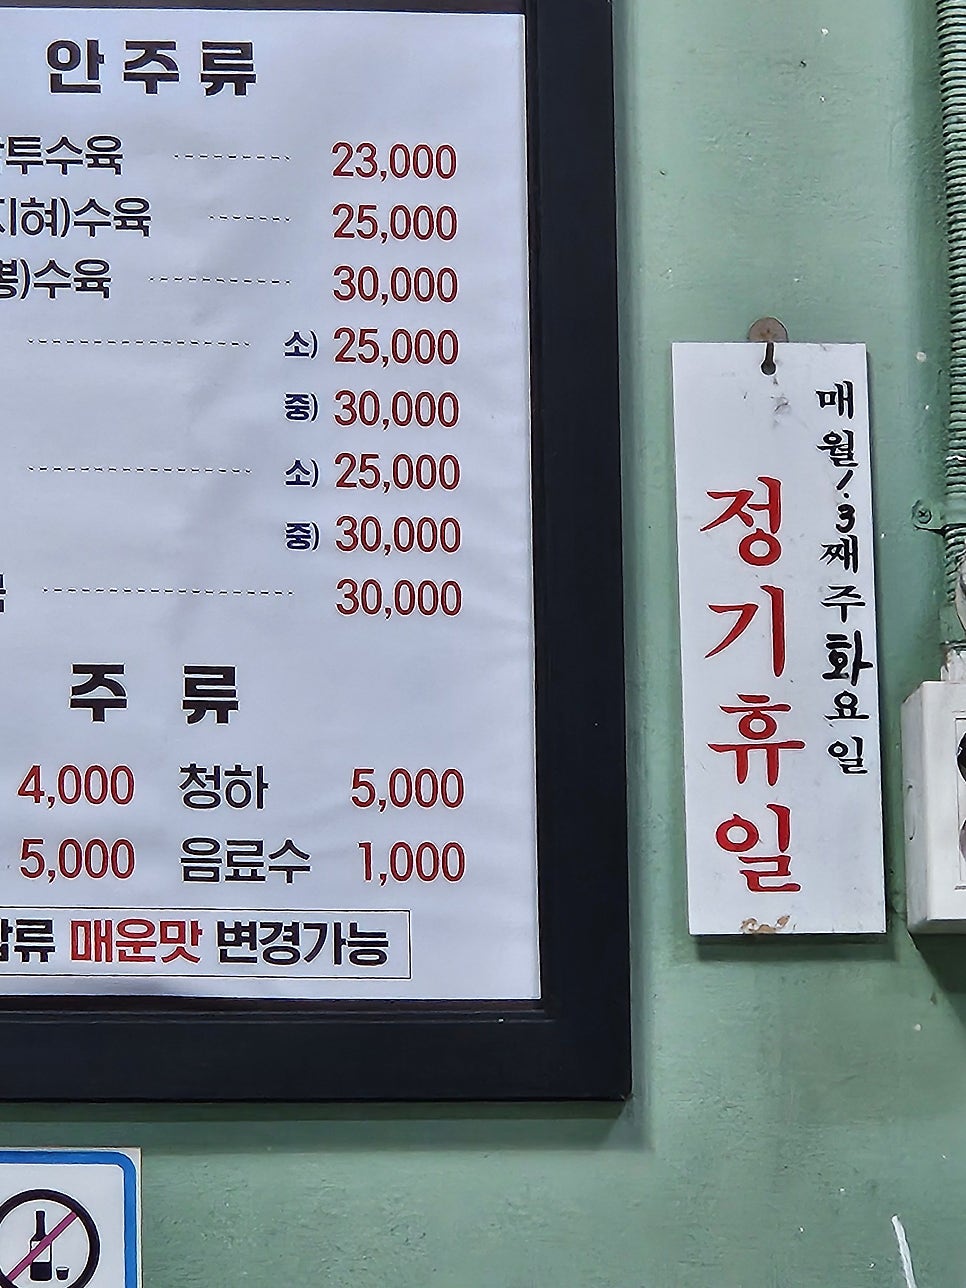 안주류
투수육 23,000
지혜)수육 25,000
수육 30,000
소) 25,000
중) 30,000
소) 25,000
중) 30,000
30,000
주류
4,000 청하 5,000
5,000 음료수 1,000
류 매운맛 변경가능
매월 1.3째 주 화요일
정기휴일